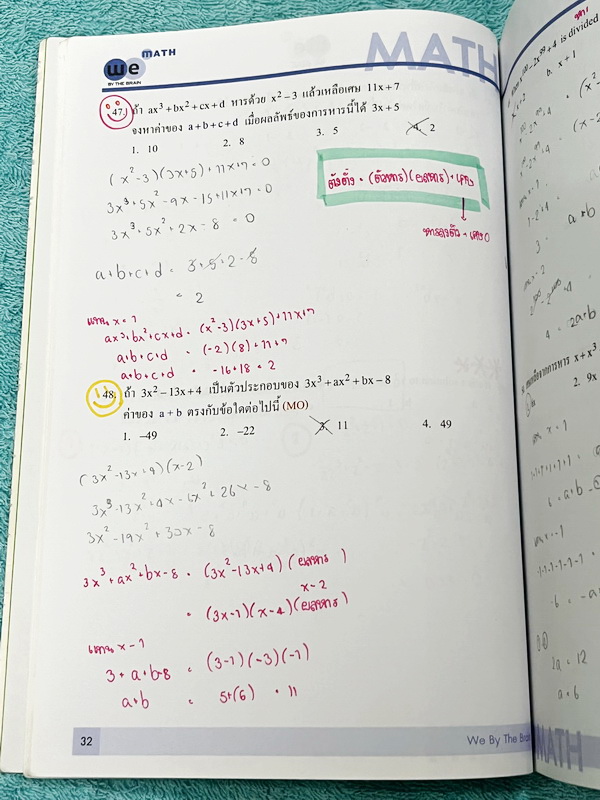 we
MATH
BY THE BRAIN
MATH
47. ถ้า ax³+bx²+cx+d หารด้วย x²−3 แล้วเหลือเศษ 11x+7
จงหาค่าของ a+b+c+d เมื่อผลลัพธ์ของการหารนี้ได้ 3x+5
1. 10 2. 8 3. 5 4. 2
(x²-3)(3x+5)+11x+7=0
3x³+5x²-9x-15+11x+7=0
3x³+5x²+2x-8=0
ตัวตั้ง = (ตัวหาร)(ผลหาร)+เศษ
หารลงตัว = เศษ 0
a+b+c+d = 3+5+2-8
= 2
แทน x=1
ax³+bx²+cx+d = (x²-3)(3x+5)+11x+7
a+b+c+d = (-2)(8)+11+7
a+b+c+d = -16+18 = 2
48. ถ้า 3x²−13x+4 เป็นตัวประกอบของ 3x³+ax²+bx−8
ค่าของ a+b ตรงกับข้อใดต่อไปนี้ (MO)
1. −49 2. −22 3. 11 4. 49
(3x²-13x+4)(x-2)
3x³-13x²+4x-6x²+26x-8
3x²-19x²+30x-8
3x³+ax²+bx-8 = (3x²-13x+4)(ผลหาร)
x-2
= (3x-1)(x-4)(ผลหาร)
แทน x=1
3+a+b-8 = (3-1)(-3)(-1)
a+b = 5+(6) = 11
32
We By The Brain
MATH
is divided
b. x+1
2a = 12
a = 6